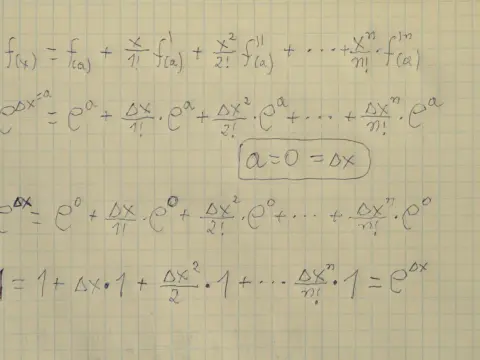 f(x) = f(a) + x/1! f'(a) + x²/2! f''(a) + ··· + xⁿ/n! · f'ⁿ(a)
e^Δx=a = e^a + Δx/1! · e^a + Δx²/2! · e^a + ··· + Δxⁿ/n! · e^a
a = 0 = Δx
e^Δx = e⁰ + Δx/1! · e⁰ + Δx²/2! · e⁰ + ··· + Δxⁿ/n! · e⁰
1 = 1 + Δx · 1 + Δx²/2 · 1 + ··· Δxⁿ/n! · 1 = e^Δx